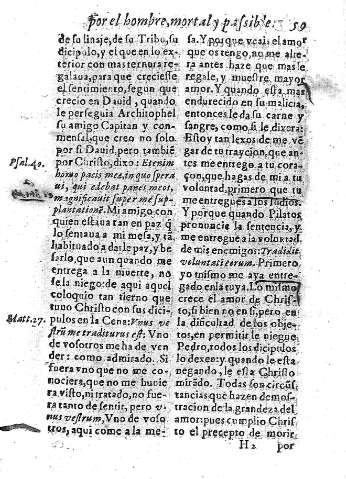 por el hombre, mortal y passible. 59
de su linaje, de su Tribu, su
dicipulo, y el que en lo ex-
terior con mas ternura re-
galaua, para que creciesse
el sentimiento, segun que
crecio en Dauid, quando
le perseguia Architophel
su amigo Capitan y con-
mensal, que creo no solo
por si Dauid, pero tambiē
por Christo, dixo: Etenim
Psal. 40.
homo pacis meæ, in quo spera
ui, qui edebat panes meos,
magnificauit super me sup-
plantationē. Mi amigo con
quien estaua tan en paz q̄
lo sentaua a mi mesa, y tā
habituado a darle paz, y be
sarlo, que aun quando me
entrega a la muerte, no
se la niego: de aqui aquel
coloquio tan tierno que
tuuo Christo con sus dici-
pulos en la Cena: Vnus ve
Matt. 27.
strū me traditurus est: Vno
de vosotros me ha de ven
der: como admirado. Si
fuera vno que no me co-
nociera, que no me huuie
ra visto, ni tratado, no fue
ra tanto de sentir, pero v-
nus vestrum, Vno de voso
tros, aqui como a la me-
sa. Y porque veais el amor
que os tengo, no me alte-
ra antes haze que mas le
regale, y muestre mayor
amor. Y quando esta mas
endurecido en su malicia,
entonces le da su carne y
sangre, como si le dixera:
Estoy tan lexos de me vē
gar de tu traycion, que an
tes me entrego a tu cora-
çon, que hagas de mi a tu
voluntad, primero que tu
me entregues a los Iudios.
Y porque quando Pilatos
pronuncie la sentencia, y
me entregue a la volūtad
de mis enemigos: Tradidit
voluntati eorum. Primero
yo mismo me aya entre-
gado en la tuya. Lo mismo
crece el amor de Chris-
to, si bien no en si, pero en
la dificultad de los obje-
tos, en permitir le niegue
Pedro, todos los dicipulos
lo dexen: y quando le esta
negando, le esta Christo
mirādo. Todas son circūs
tancias que hazen demos-
tracion de la grandeza del
amor: pues cumplio Chris
to el precepto de morir,
H 2 por